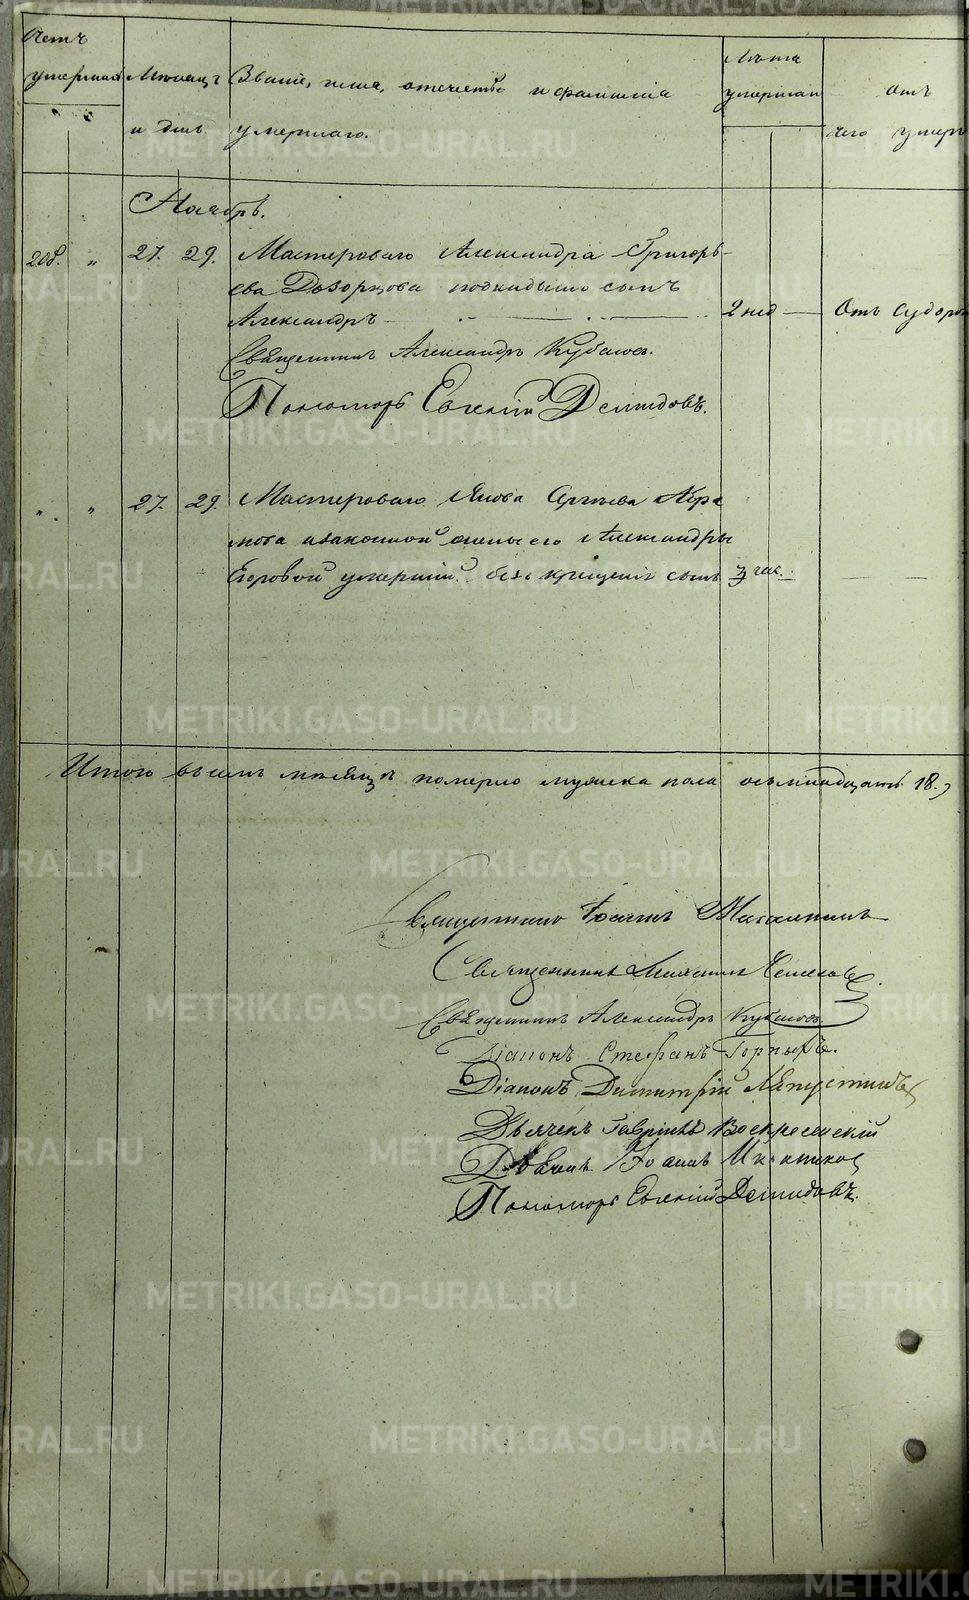 Счетъ умершихъ
Мѣсяцъ и день
Званіе, имя, отечество и фамилія умершаго.
Лѣта умершаго
отъ чего умеръ
Ноябрь.
208. " 27. 29. Мастероваго Александра Григорь-
ева Дозорцова подкидышъ сынъ
Александръ 2 нед Отъ судорог
Священникъ Александръ
Пономарь Евгеній Демидовъ.
" " 27. 29. Мастероваго Якова
мова и законной жены его Александры
Егоровой умершій безъ крещенія сынъ 3 час.
Итого въ семъ мѣсяцѣ померло мужска пола осьмнадцать 18.
Священникъ Іоаннъ
Священникъ
Священникъ Александръ
Діаконъ Стефанъ Горныхъ.
Діаконъ Димитрій Ляпустинъ
Дьячекъ Гавріилъ Воскресенскій
Дьячекъ Іоаннъ
Пономарь Евгеній Демидовъ.
METRIKI.GASO-URAL.RU